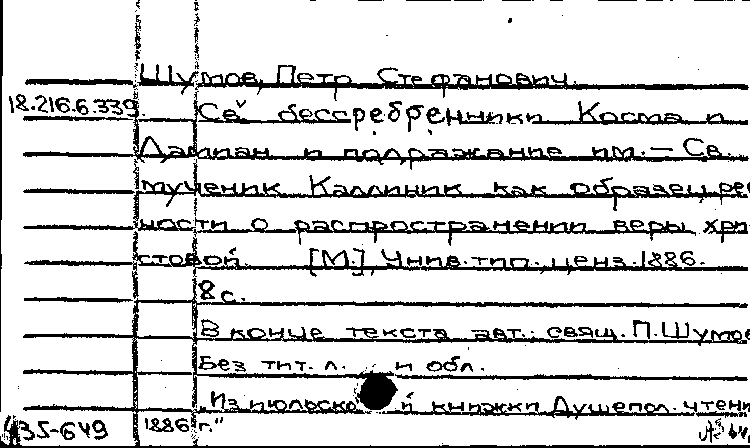 Шумов, Петр Стефанович.
18.216.6.339. Св. бессребренники Косма и
Дамиан и подражание им. — Св.
мученик Каллиник как образец рев
ности о распространении веры хри
стовой. [М.], Унив. тип., ценз. 1886.
8 с.
В конце текста авт.: свящ. П. Шумов
Без тит. л. и обл.
„Из июльско й книжки Душепол. чтени
1886 г."
435-649